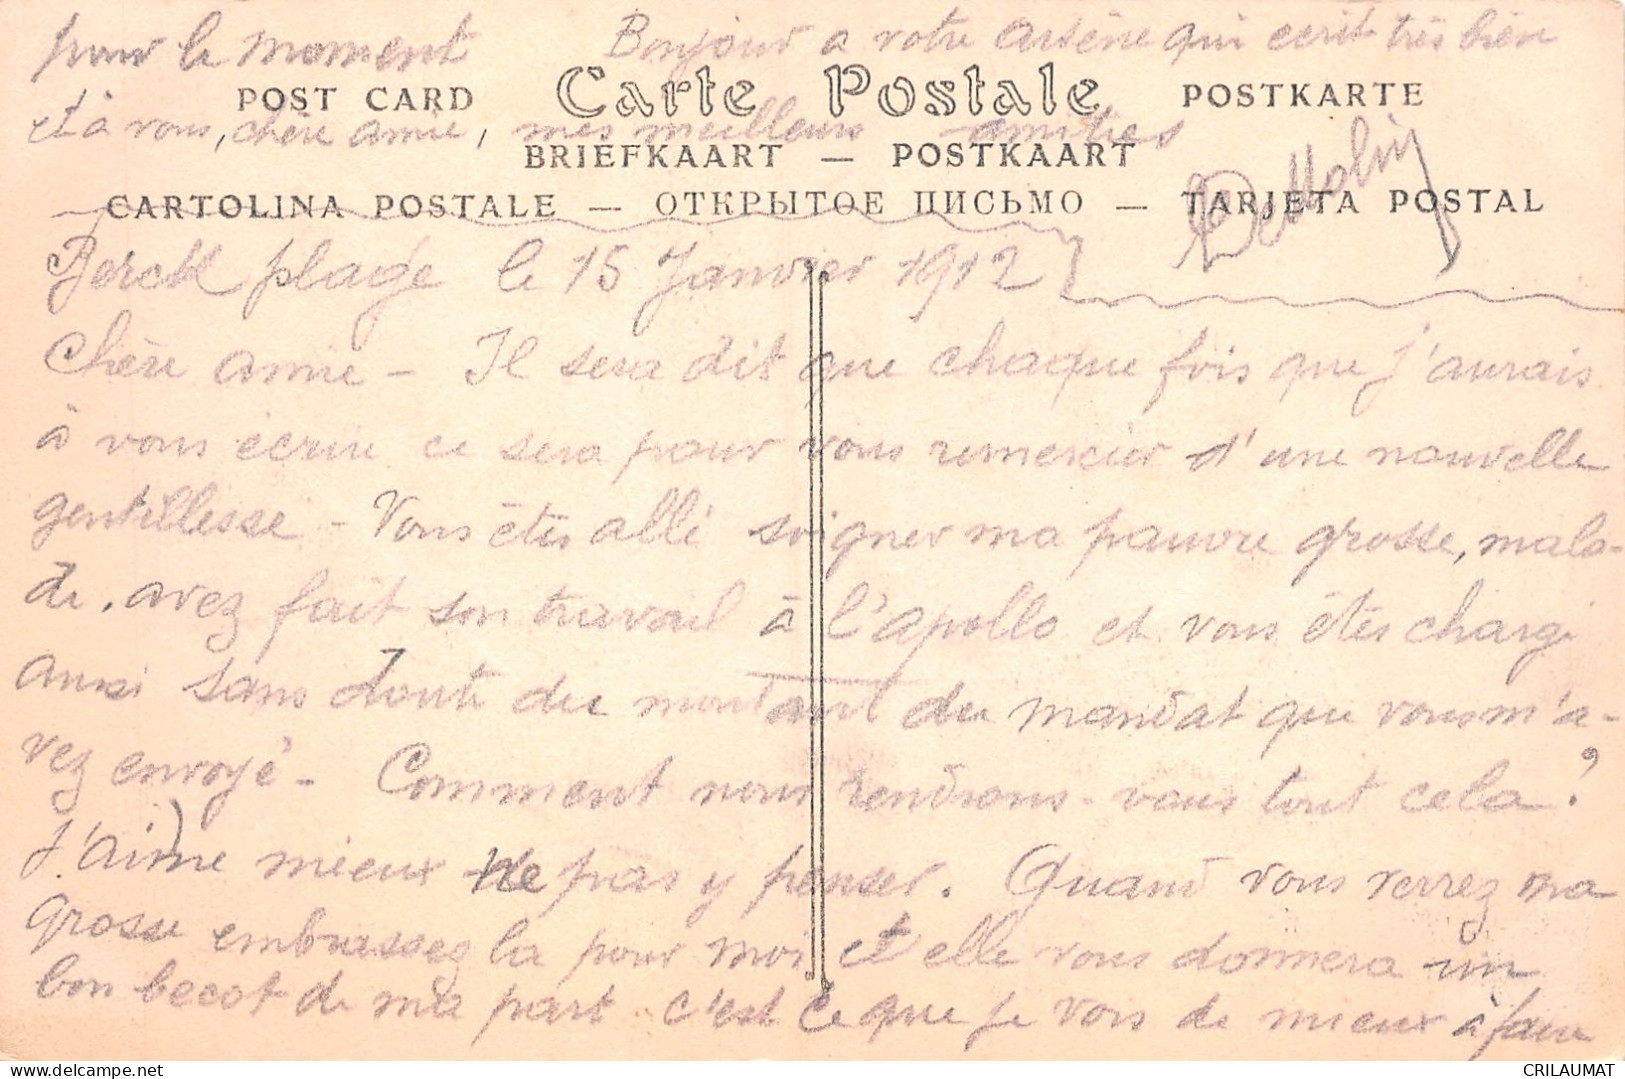 pour le moment Bonjour a votre Arsène qui ecrit très bien
POST CARD Carte Postale POSTKARTE
et à vous, chère amie, mes meilleurs amitiés
BRIEFKAART — POSTKAART
CARTOLINA POSTALE — ОТКРЫТОЕ ПИСЬМО — TARJETA POSTAL
Berck plage le 15 Janvier 1912
Chère amie - Il sera dit que chaque fois que j'aurais
à vous écrire ce sera pour vous remercier d'une nouvelle
gentillesse - Vous êtes allé soigner ma pauvre grosse, mala-
de. avez fait son travail à l'apollo et vous êtes chargé
aussi sans doute du montant du mandat que vous m'a-
vez envoyé - Comment nous rendrons-vous tout cela?
J'aime mieux ne pas y penser. Quand vous verrez ma
grosse embrassez la pour moi et elle vous donnera un
bon becot de ma part c'est ce que je vois de mieux à faire
CRILAUMAT